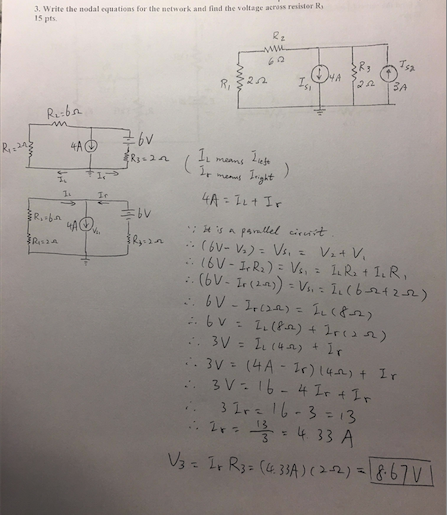 3. Write the nodal equations for the network and find the voltage across resistor R₃
15 pts.
R₂
6Ω
R₁ 2Ω Is₁ 4A R₃ 2Ω Is₂ 3A
R₂=6Ω
R₁=2Ω 4A 6V
R₃=2Ω
I_L I_r
( I_L means I left
I_r means I right )
I_L I_r
R₂=6Ω 4A Vs₁ 6V
R₁=2Ω R₃=2Ω
4A = I_L + I_r
∵ It is a parallel circuit.
∴ (6V - V₃) = Vs₁ = V₂ + V₁
∴ (6V - I_rR₂) = Vs₁ = I_LR₂ + I_LR₁
∴ (6V - I_r(2Ω)) = Vs₁ = I_L(6Ω+2Ω)
∴ 6V - I_r(2Ω) = I_L(8Ω)
∴ 6V = I_L(8Ω) + I_r(2Ω)
∴ 3V = I_L(4Ω) + I_r
∴ 3V = (4A - I_r)(4Ω) + I_r
∴ 3V = 16 - 4I_r + I_r
∴ 3I_r = 16 - 3 = 13
∴ I_r = 13/3 = 4.33 A
V₃ = I_r R₃ = (4.33A)(2Ω) = 8.67V